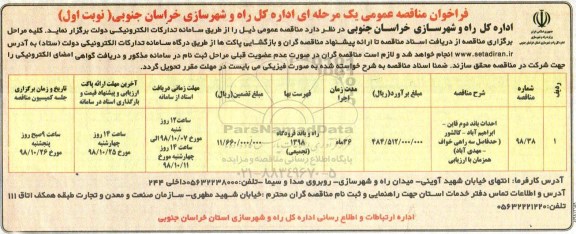 فراخوان مناقصه عمومی یک مرحله ای اداره کل راه و شهرسازی خراسان جنوبی( نوبت اول)
اداره کل راه و شهرسازی خراسان جنوبی در نظر دارد مناقصه عمومی ذیل را از طریق سامانه تدارکات الکترونیکی دولت برگزار نماید. کلیه مراحل
برگزاری مناقصه از دریافت اسناد مناقصه تا ارائه پیشنهاد مناقصه گران و بازگشایی پاکت ها از طریق درگاه سامانه تدارکات الکترونیکی دولت (ستاد) به آدرس
www.setadiran.ir انجام خواهد شد و لازم است مناقصه گران در صورت عدم عضویت قبلی مراحل ثبت نام در سامانه مذکور و دریافت گواهی امضای الکترونیکی را
جهت شرکت در مناقصه محقق سازند. ضمنا اسناد مناقصه به شرح خواسته شده به صورت فیزیکی می بایست در مهلت مقرر تحویل گردد.
ردیف
شماره مناقصه
شرح مناقصه
مبلغ برآورد(ریال)
مدت زمان اجرا
فهرست بها
مبلغ تضمین(ریال)
مهلت زمانی دریافت اسناد از سامانه
آخرین مهلت ارائه پاکت ارزیابی و پیشنهاد قیمت و بارگذاری اسناد در سامانه
تاریخ و زمان برگزاری جلسه کمیسیون مناقصه
۱
۹۸/۳۸
احداث باند دوم قاین - ابراهیم آباد - گالشور ( حدفاصل سه راهی خواف - مهدی آباد) همزمان با ارزیابی
۴۸۴/۵۱۲/۰۰۰/۰۰۰
۳۶ماه
راه و باند فرودگاه ۱۳۹۸ (تجمیعی)
۱۱/۶۶۰/۰۰۰/۰۰۰
ساعت ۱۲ روز شنبه مورخ ۹۸/۱۰/۰۷ الی ساعت ۱۴ روز چهارشنبه مورخ ۹۸/۱۰/۱۱
ساعت ۱۴ روز چهارشنبه مورخ ۹۸/۱۰/۲۵
ساعت ۹صبح روز پنجشنبه مورخ ۹۸/۱۰/۲۶
آدرس کارفرما: انتهای خیابان شهید آوینی- میدان راه و شهرسازی- روبروی صدا و سیما -تلفن:۰۵۶۳۲۲۳۸۰۰۰داخلی ۲۴۴
آدرس و اطلاعات تماس دفتر خدمات استان جهت راهنمایی و ثبت نام مناقصه گران محترم :خیابان شهید مطهری- سازمان صنعت و معدن و تجارت طبقه همکف اتاق ۱۱۱
تلفن:۰۵۶۳۲۲۲۱۲۲۰
اداره ارتباطات و اطلاع رسانی اداره کل راه و شهرسازی استان خراسان جنوبی